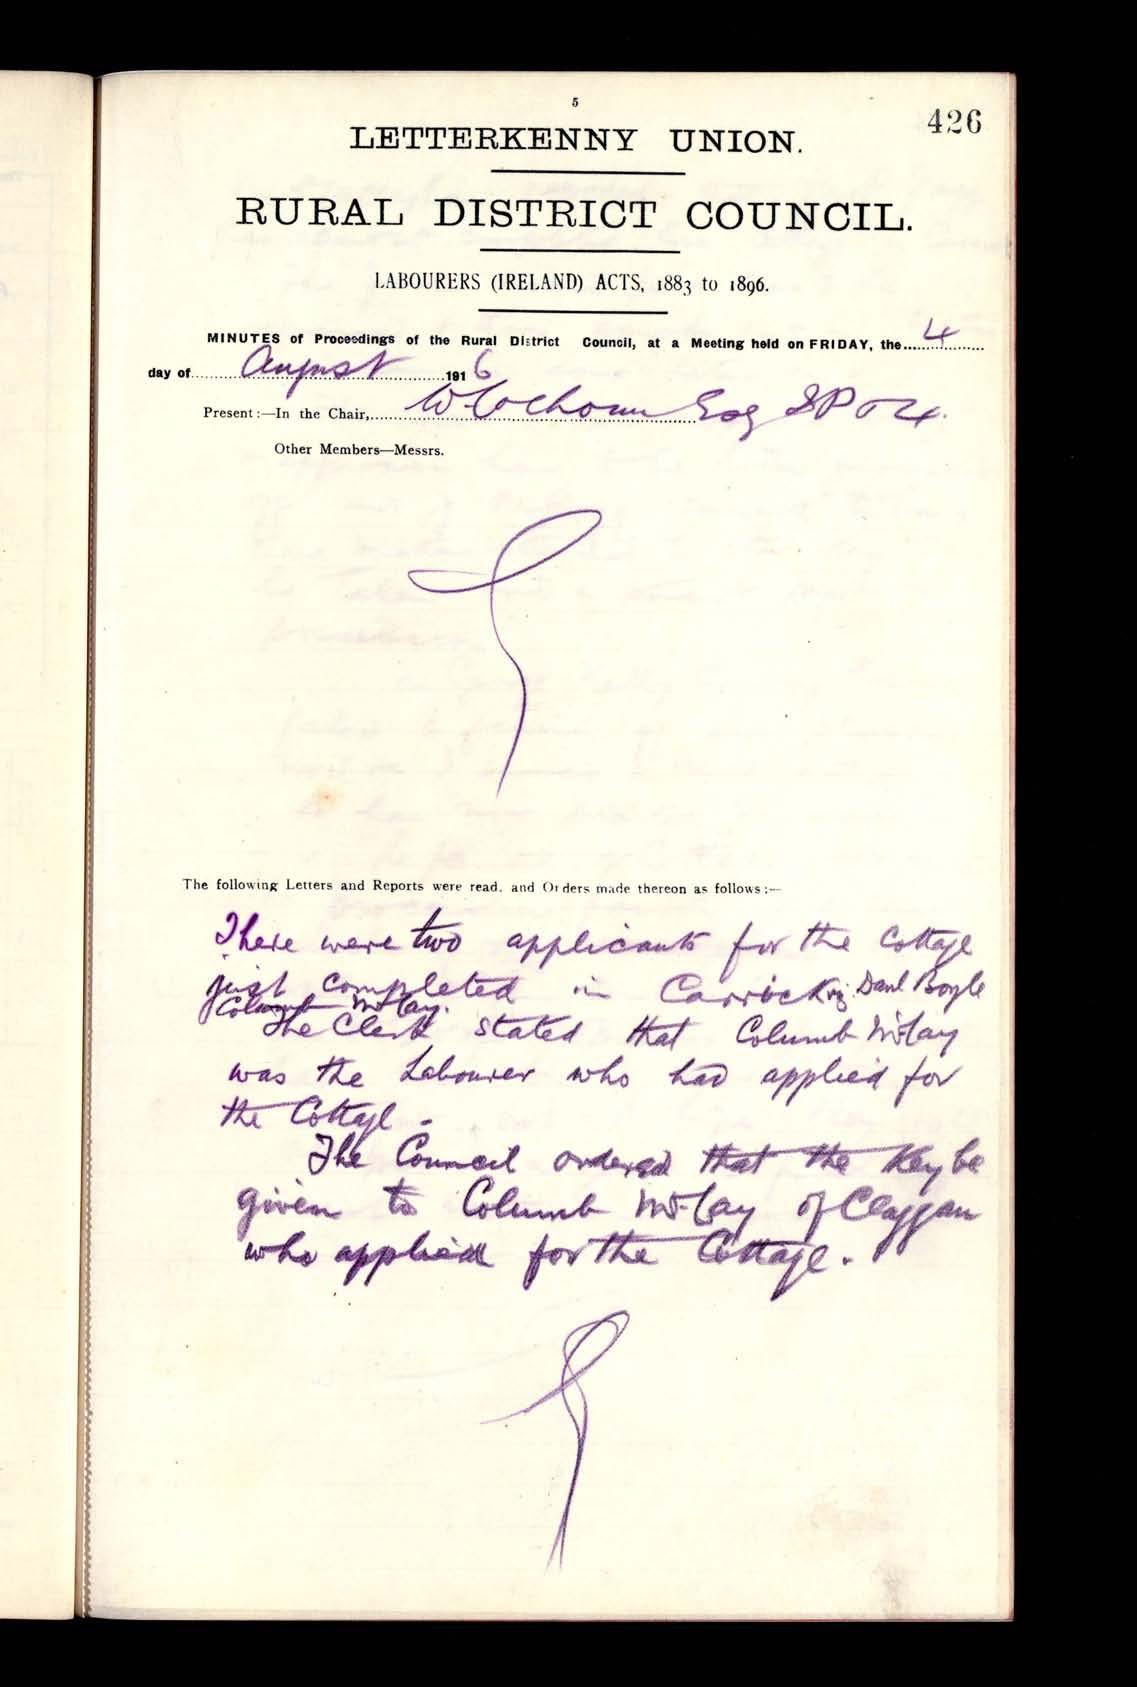 5
426
LETTERKENNY UNION.
RURAL DISTRICT COUNCIL.
LABOURERS (IRELAND) ACTS, 1883 to 1896.
MINUTES of Proceedings of the Rural District Council, at a Meeting held on FRIDAY, the 4
day of August 1916
Present:—In the Chair, W Colhoun Esq JP
Other Members—Messrs.
The following Letters and Reports were read, and Orders made thereon as follows:—
There were two applicants for the Cottage
just completed in Carrick viz Danl Boyle
Columb McCay.
The Clerk stated that Columb McCay
was the Labourer who had applied for
the Cottage -
The Council ordered that the Key be
given to Columb McCay of Claggan
who applied for the Cottage.